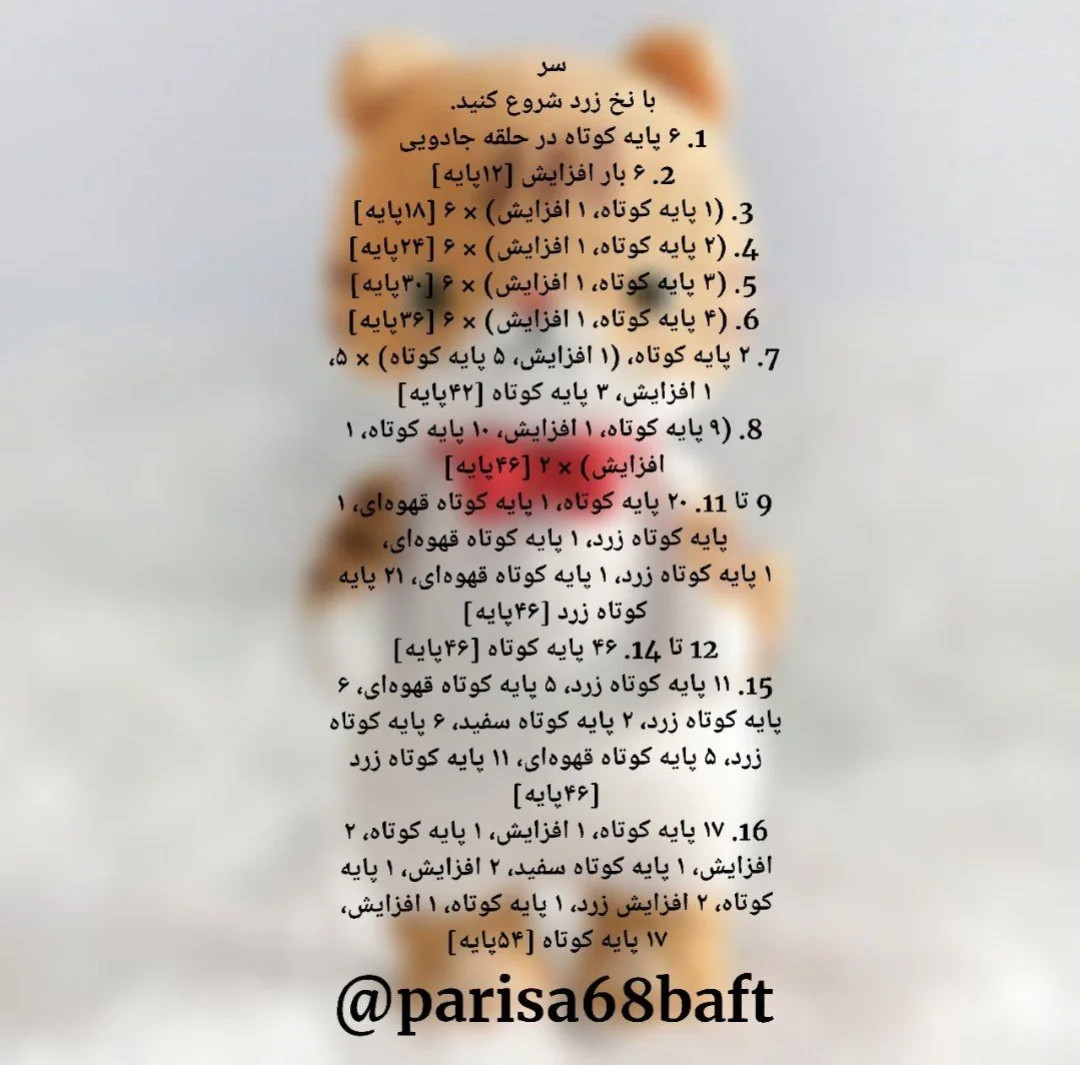 سر
با نخ زرد شروع کنید.
1. ۶ پایه کوتاه در حلقه جادویی
2. ۶ بار افزایش [۱۲پایه]
3. (۱ پایه کوتاه، ۱ افزایش) × ۶ [۱۸پایه]
4. (۲ پایه کوتاه، ۱ افزایش) × ۶ [۲۴پایه]
5. (۳ پایه کوتاه، ۱ افزایش) × ۶ [۳۰پایه]
6. (۴ پایه کوتاه، ۱ افزایش) × ۶ [۳۶پایه]
7. ۲ پایه کوتاه، (۱ افزایش، ۵ پایه کوتاه) × ۵،
۱ افزایش، ۳ پایه کوتاه [۴۲پایه]
8. (۹ پایه کوتاه، ۱ افزایش، ۱۰ پایه کوتاه، ۱
افزایش) × ۲ [۴۶پایه]
9 تا 11. ۲۰ پایه کوتاه، ۱ پایه کوتاه قهوه‌ای، ۱
پایه کوتاه زرد، ۱ پایه کوتاه قهوه‌ای،
۱ پایه کوتاه زرد، ۱ پایه کوتاه قهوه‌ای، ۲۱ پایه
کوتاه زرد [۴۶پایه]
12 تا 14. ۴۶ پایه کوتاه [۴۶پایه]
15. ۱۱ پایه کوتاه زرد، ۵ پایه کوتاه قهوه‌ای، ۶
پایه کوتاه زرد، ۲ پایه کوتاه سفید، ۶ پایه کوتاه
زرد، ۵ پایه کوتاه قهوه‌ای، ۱۱ پایه کوتاه زرد
[۴۶پایه]
16. ۱۷ پایه کوتاه، ۱ افزایش، ۱ پایه کوتاه، ۲
افزایش، ۱ پایه کوتاه سفید، ۲ افزایش، ۱ پایه
کوتاه، ۲ افزایش زرد، ۱ پایه کوتاه، ۱ افزایش،
۱۷ پایه کوتاه [۵۴پایه]
@parisa68baft